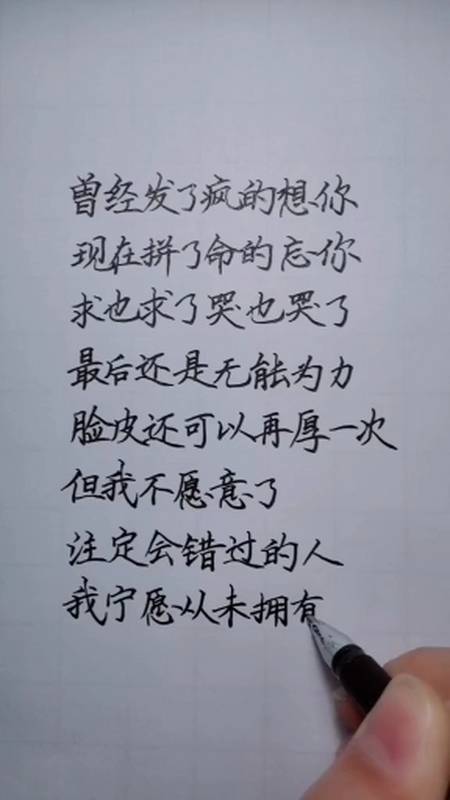 曾经发了疯的想你
现在拼了命的忘你
求也求了哭也哭了
最后还是无能为力
脸皮还可以再厚一次
但我不愿意了
注定会错过的人
我宁愿从未拥有